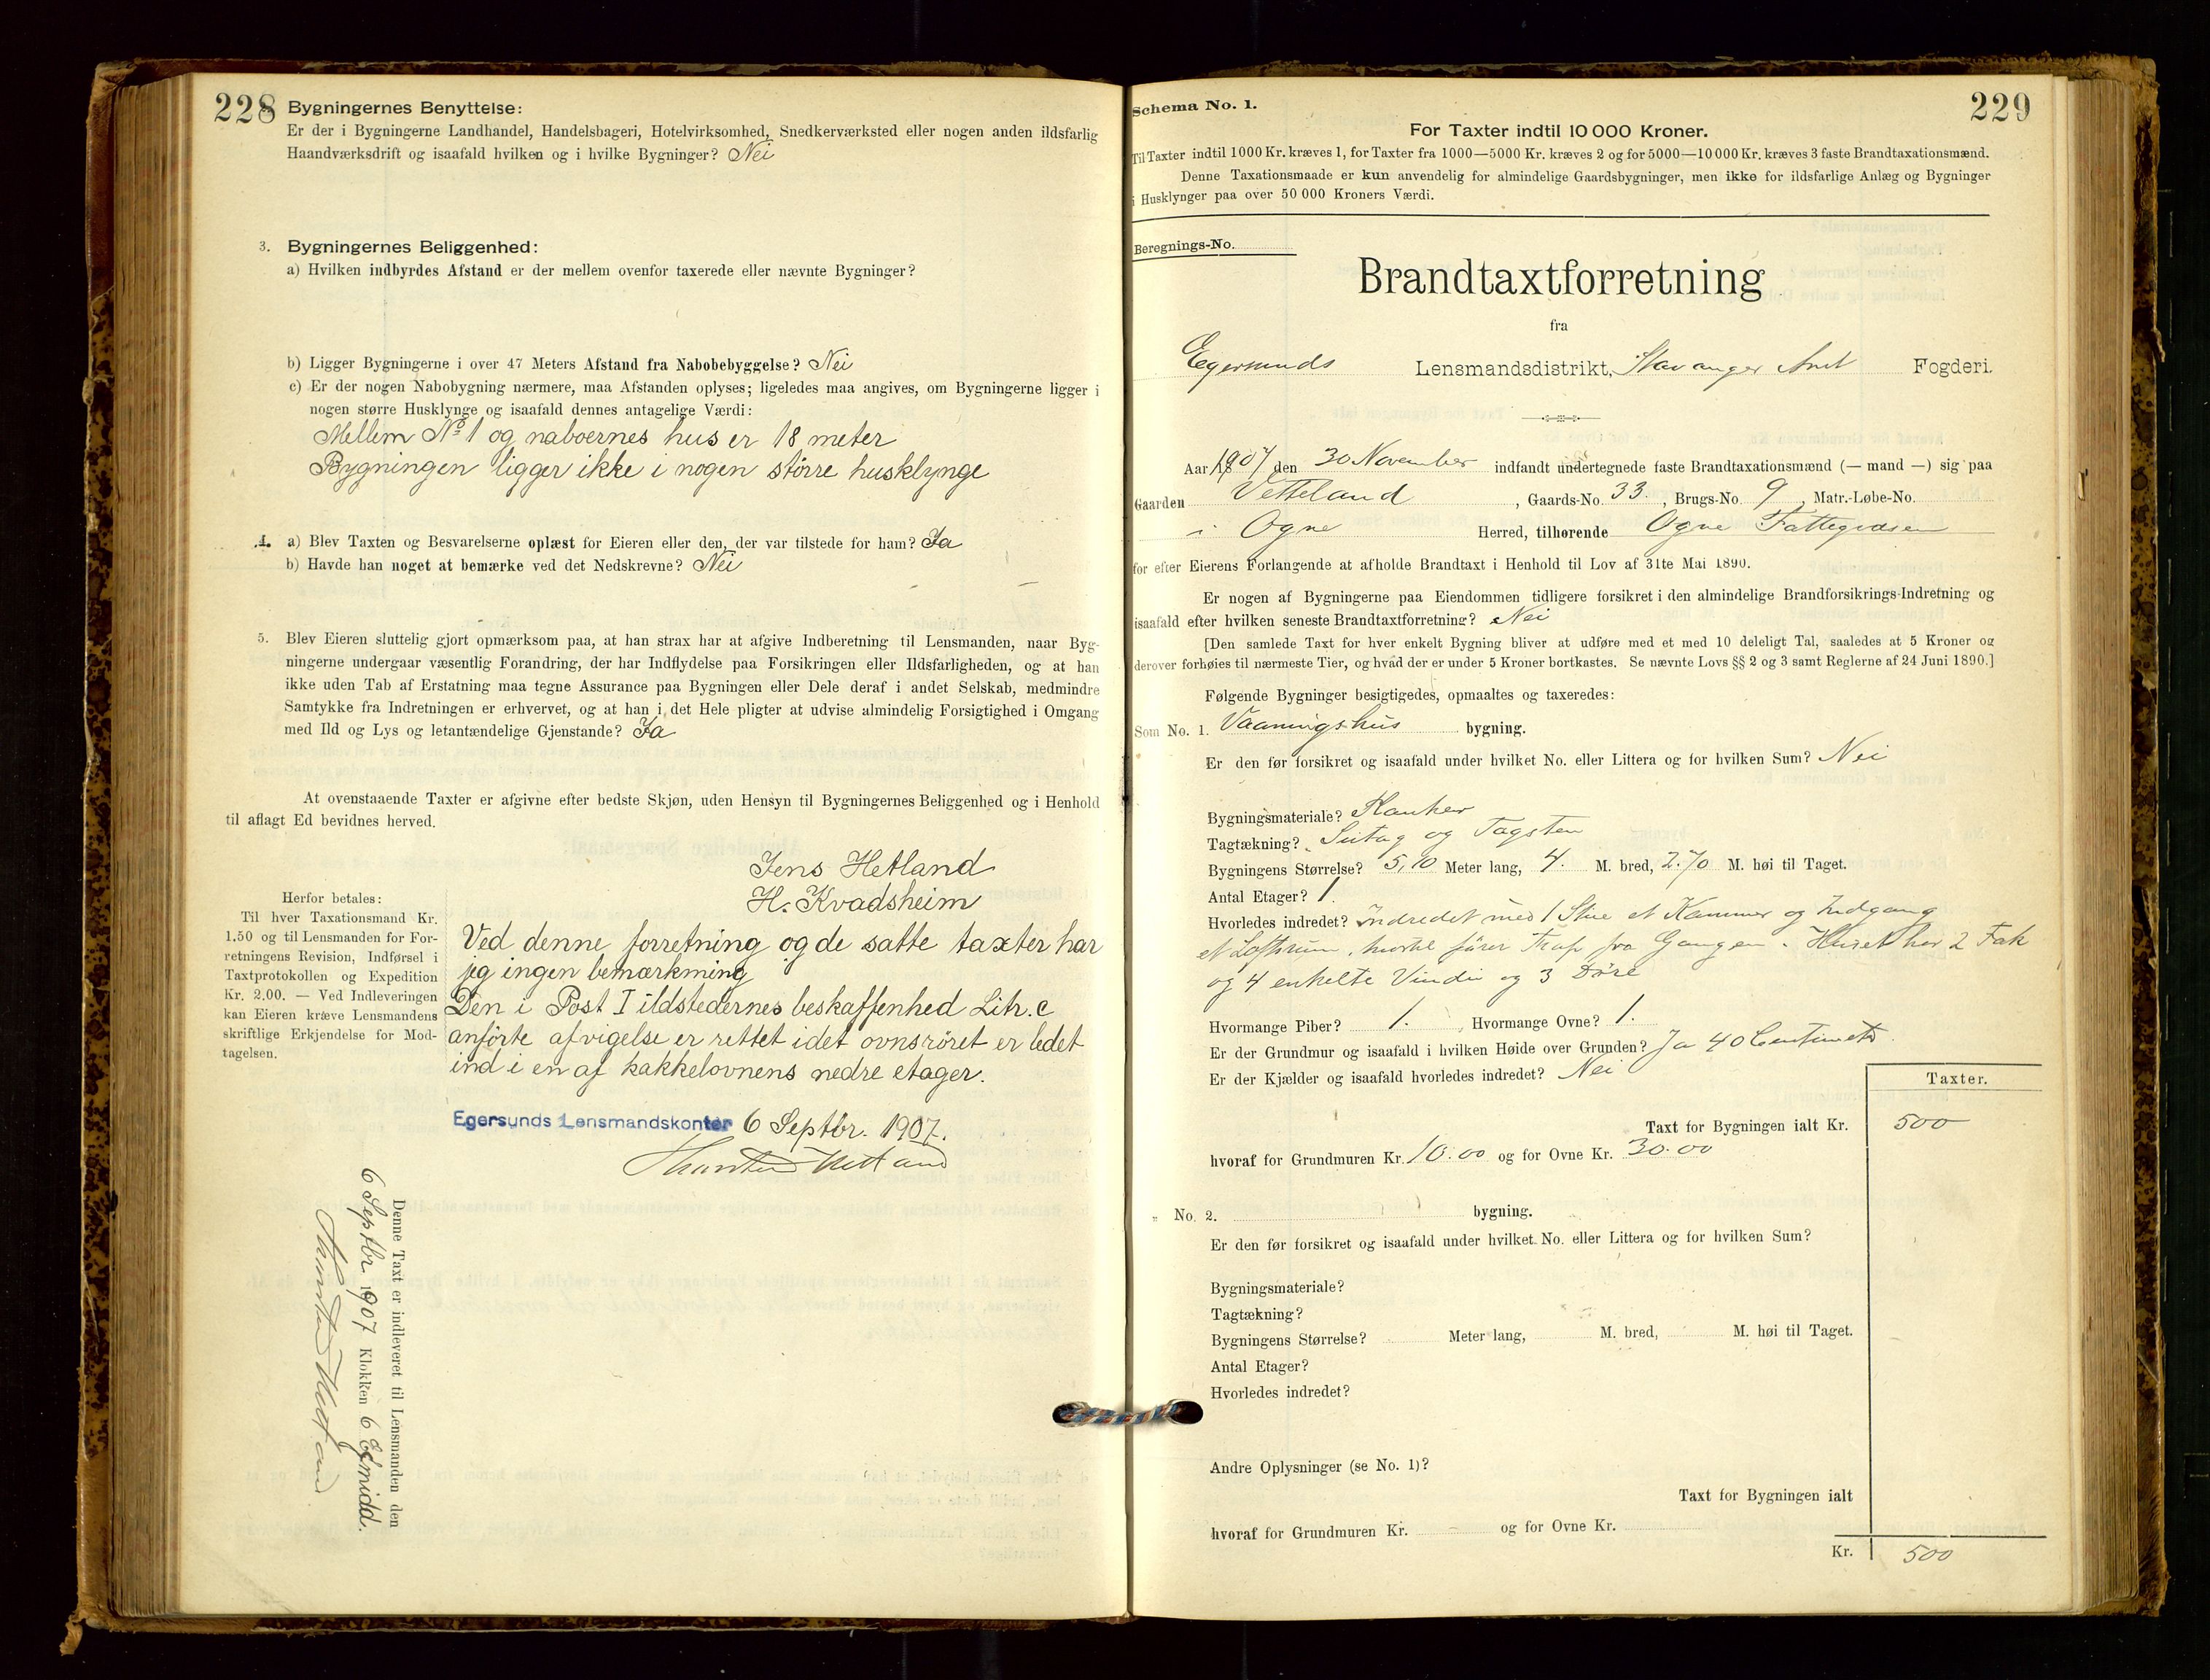 228
Bygningernes Benyttelse:
Er der i Bygningerne Landhandel, Handelsbageri, Hotelvirksomhed, Snedkerværksted eller nogen anden ildsfarlig
Haandværksdrift og isaafald hvilken og i hvilke Bygninger? Nei
3. Bygningernes Beliggenhed:
a) Hvilken indbyrdes Afstand er der mellem ovenfor taxerede eller nævnte Bygninger?
b) Ligger Bygningerne i over 47 Meters Afstand fra Nabobebyggelse? Nei
c) Er der nogen Nabobygning nærmere, maa Afstanden oplyses; ligeledes maa angives, om Bygningerne ligger i
nogen større Husklynge og isaafald dennes antagelige Værdi:
Mellem No 1 og naboernes hus er 18 meter
Bygningen ligger ikke i nogen större husklynge
4. a) Blev Taxten og Besvarelserne oplæst for Eieren eller den, der var tilstede for ham? Ja
b) Havde han noget at bemærke ved det Nedskrevne? Nei
5. Blev Eieren sluttelig gjort opmærksom paa, at han strax har at afgive Indberetning til Lensmanden, naar Byg-
ningerne undergaar væsentlig Forandring, der har Indflydelse paa Forsikringen eller Ildsfarligheden, og at han
ikke uden Tab af Erstatning maa tegne Assurance paa Bygningen eller Dele deraf i andet Selskab, medmindre
Samtykke fra Indretningen er erhvervet, og at han i det Hele pligter at udvise almindelig Forsigtighed i Omgang
med Ild og Lys og letantændelige Gjenstande? Ja
At ovenstaaende Taxter er afgivne efter bedste Skjøn, uden Hensyn til Bygningernes Beliggenhed og i Henhold
til aflagt Ed bevidnes herved.
Jens Hetland
H. Kvadsheim
Herfor betales:
Til hver Taxationsmand Kr.
1.50 og til Lensmanden for For-
retningens Revision, Indførsel i
Taxtprotokollen og Expedition
Kr. 2.00. — Ved Indleveringen
kan Eieren kræve Lensmandens
skriftlige Erkjendelse for Mod-
tagelsen.
Ved denne forretning og de satte taxter har
jeg ingen bemærkning
Den i Post I ildstedernes beskaffenhed Litr. c
anförte afvigelse er rettet idet ovnsröret er ledet
ind i en af kakkelovnens nedre etager.
Egersunds Lensmandskontor 6 Septbr. 1907.
Denne Taxt er indleveret til Lensmanden den
6 Septbr 1907 Klokken 6 Efmidd.
Schema No. 1.
229
For Taxter indtil 10 000 Kroner.
Til Taxter indtil 1000 Kr. kræves 1, for Taxter fra 1000—5000 Kr. kræves 2 og for 5000—10 000 Kr. kræves 3 faste Brandtaxationsmænd.
Denne Taxationsmaade er kun anvendelig for almindelige Gaardsbygninger, men ikke for ildsfarlige Anlæg og Bygninger
i Husklynger paa over 50 000 Kroners Værdi.
Beregnings-No.
Brandtaxtforretning
fra
Egersunds Lensmandsdistrikt, Stavanger Amt Fogderi.
Aar 1907 den 30 November indfandt undertegnede faste Brandtaxationsmænd (— mand —) sig paa
Gaarden Vetteland, Gaards-No. 33., Brugs-No. 9, Matr.-Løbe-No.
i Ogne Herred, tilhørende Ogne
for efter Eierens Forlangende at afholde Brandtaxt i Henhold til Lov af 31te Mai 1890.
Er nogen af Bygningerne paa Eiendommen tidligere forsikret i den almindelige Brandforsikrings-Indretning og
isaafald efter hvilken seneste Brandtaxtforretning? Nei
[Den samlede Taxt for hver enkelt Bygning bliver at udføre med et med 10 deleligt Tal, saaledes at 5 Kroner og
derover forhøies til nærmeste Tier, og hvad der er under 5 Kroner bortkastes. Se nævnte Lovs §§ 2 og 3 samt Reglerne af 24 Juni 1890.]
Følgende Bygninger besigtigedes, opmaaltes og taxeredes:
Som No. 1. Vaaningshus bygning.
Er den før forsikret og isaafald under hvilket No. eller Littera og for hvilken Sum? Nei
Bygningsmateriale? Planker
Tagtækning? og Tagsten
Bygningens Størrelse? 5,10 Meter lang, 4. M. bred, 2.70 M. høi til Taget.
Antal Etager? 1.
Hvorledes indredet? Indredet med 1 Stue et Kammer og Indgang
et Loftsrum, hvortil fører Trap fra Gangen. Huset har 2 Fak
og 4 enkelte Vinduer og 3 Döre
Hvormange Piber? 1. Hvormange Ovne? 1.
Er der Grundmur og isaafald i hvilken Høide over Grunden? Ja 40 Centimeter.
Er der Kjælder og isaafald hvorledes indredet? Nei
Taxter.
Taxt for Bygningen ialt Kr. 500
hvoraf for Grundmuren Kr. 10.00 og for Ovne Kr. 30.00
" No. 2. bygning.
Er den før forsikret og isaafald under hvilket No. eller Littera og for hvilken Sum?
Bygningsmateriale?
Tagtækning?
Bygningens Størrelse? Meter lang, M. bred, M. høi til Taget.
Antal Etager?
Hvorledes indredet?
Andre Oplysninger (se No. 1)?
Taxt for Bygningen ialt
hvoraf for Grundmuren Kr. og for Ovne Kr.
Kr. 500